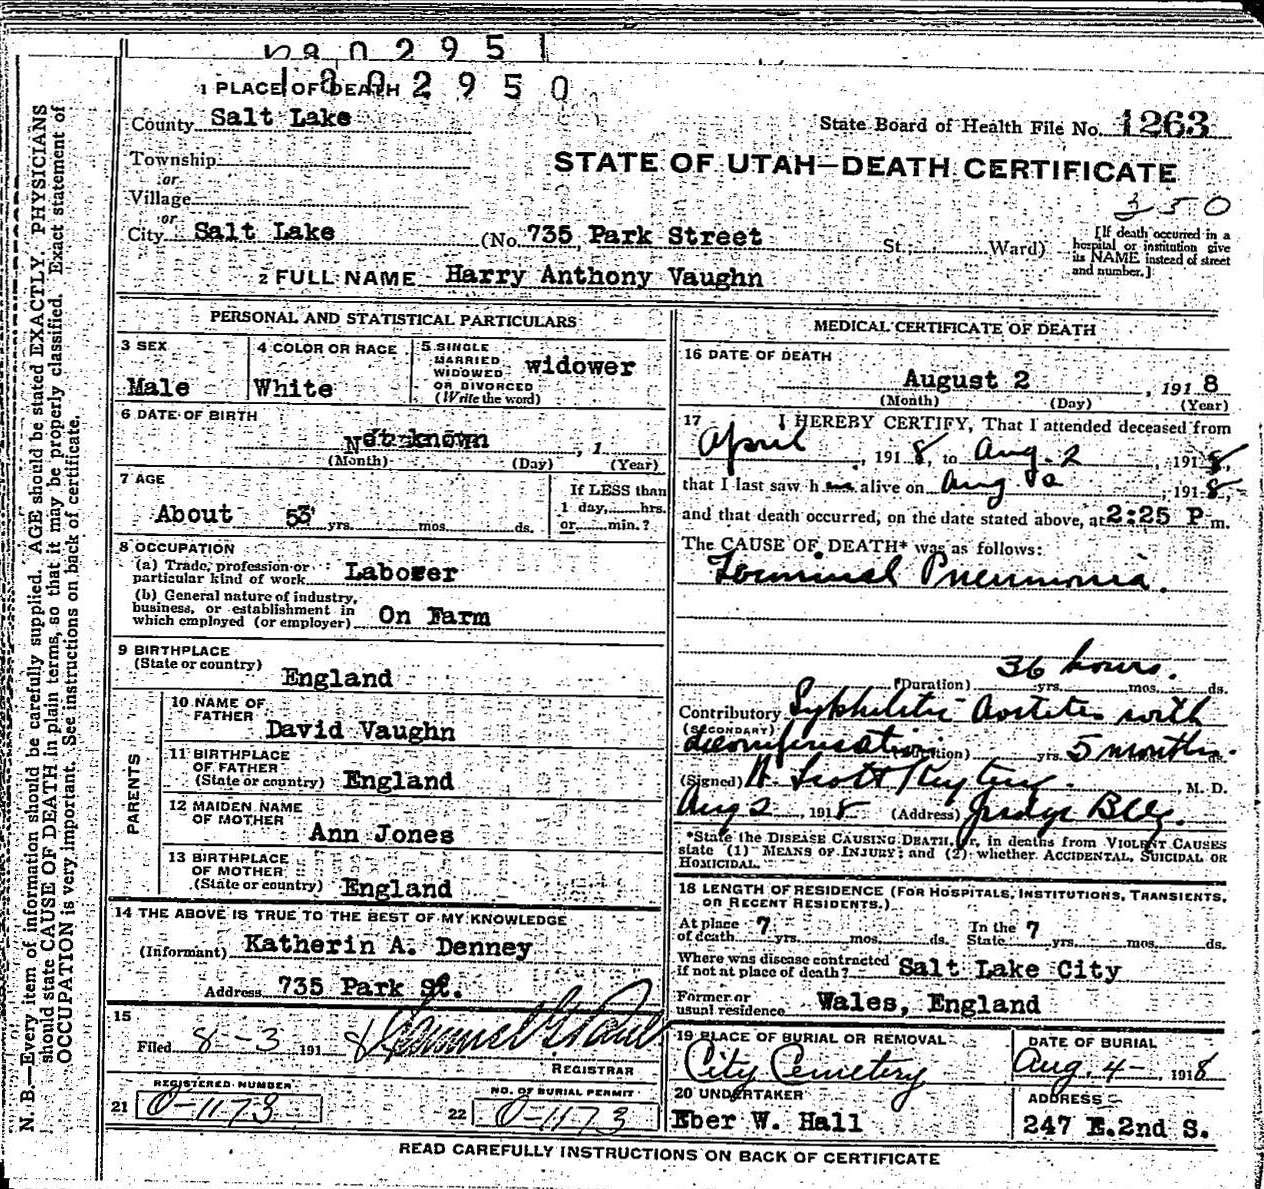 1802951
1802950
1 PLACE OF DEATH
County Salt Lake
State Board of Health File No. 1263
Township
STATE OF UTAH—DEATH CERTIFICATE
or
Village
350
or
City Salt Lake (No. 735 Park Street St; Ward)
[If death occurred in a hospital or institution give its NAME instead of street and number.]
2 FULL NAME Harry Anthony Vaughn
PERSONAL AND STATISTICAL PARTICULARS
3 SEX
Male
4 COLOR OR RACE
White
5 SINGLE
MARRIED
WIDOWED
OR DIVORCED
(Write the word)
widower
6 DATE OF BIRTH
Not known , 1
(Month) (Day) (Year)
7 AGE
About 53 yrs. mos. ds.
If LESS than
1 day, hrs.
or min.?
8 OCCUPATION
(a) Trade, profession or
particular kind of work Laborer
(b) General nature of industry,
business, or establishment in
which employed (or employer) On Farm
9 BIRTHPLACE
(State or country)
England
PARENTS
10 NAME OF
FATHER
David Vaughn
11 BIRTHPLACE
OF FATHER
(State or country) England
12 MAIDEN NAME
OF MOTHER
Ann Jones
13 BIRTHPLACE
OF MOTHER
(State or country) England
14 THE ABOVE IS TRUE TO THE BEST OF MY KNOWLEDGE
(Informant) Katherin A. Denney
Address 735 Park St.
15
Filed 8-3 191 8
REGISTRAR
REGISTERED NUMBER
21 O-1173
NO. OF BURIAL PERMIT
22 O-1173
MEDICAL CERTIFICATE OF DEATH
16 DATE OF DEATH
August 2 , 1918
(Month) (Day) (Year)
17 I HEREBY CERTIFY, That I attended deceased from
April , 1918, to Aug. 2 , 1918,
that I last saw h alive on Aug 2 , 1918,
and that death occurred, on the date stated above, at 2:25 P m.
The CAUSE OF DEATH* was as follows:
Terminal Pneumonia.
36 hours.
(Duration) yrs. mos. ds.
Contributory Syphilitic Aortitis with
(SECONDARY)
decompensation (Duration) yrs. 5 months. ds.
(Signed) Scott , M. D.
Aug 2 , 1918 (Address) Judge Bldg.
*State the DISEASE CAUSING DEATH, or, in deaths from VIOLENT CAUSES
state (1) MEANS OF INJURY; and (2) whether ACCIDENTAL, SUICIDAL OR
HOMICIDAL.
18 LENGTH OF RESIDENCE (FOR HOSPITALS, INSTITUTIONS, TRANSIENTS,
OR RECENT RESIDENTS.)
At place
of death 7 yrs. mos. ds.
In the
State 7 yrs. mos. ds.
Where was disease contracted
if not at place of death? Salt Lake City
Former or
usual residence Wales, England
19 PLACE OF BURIAL OR REMOVAL
City Cemetery
DATE OF BURIAL
Aug. 4- , 1918
20 UNDERTAKER
Eber W. Hall
ADDRESS
247 E.2nd S.
READ CAREFULLY INSTRUCTIONS ON BACK OF CERTIFICATE
N. B.—Every item of information should be carefully supplied. AGE should be stated EXACTLY. PHYSICIANS
should state CAUSE OF DEATH in plain terms, so that it may be properly classified. Exact statement of
OCCUPATION is very important. See instructions on back of certificate.